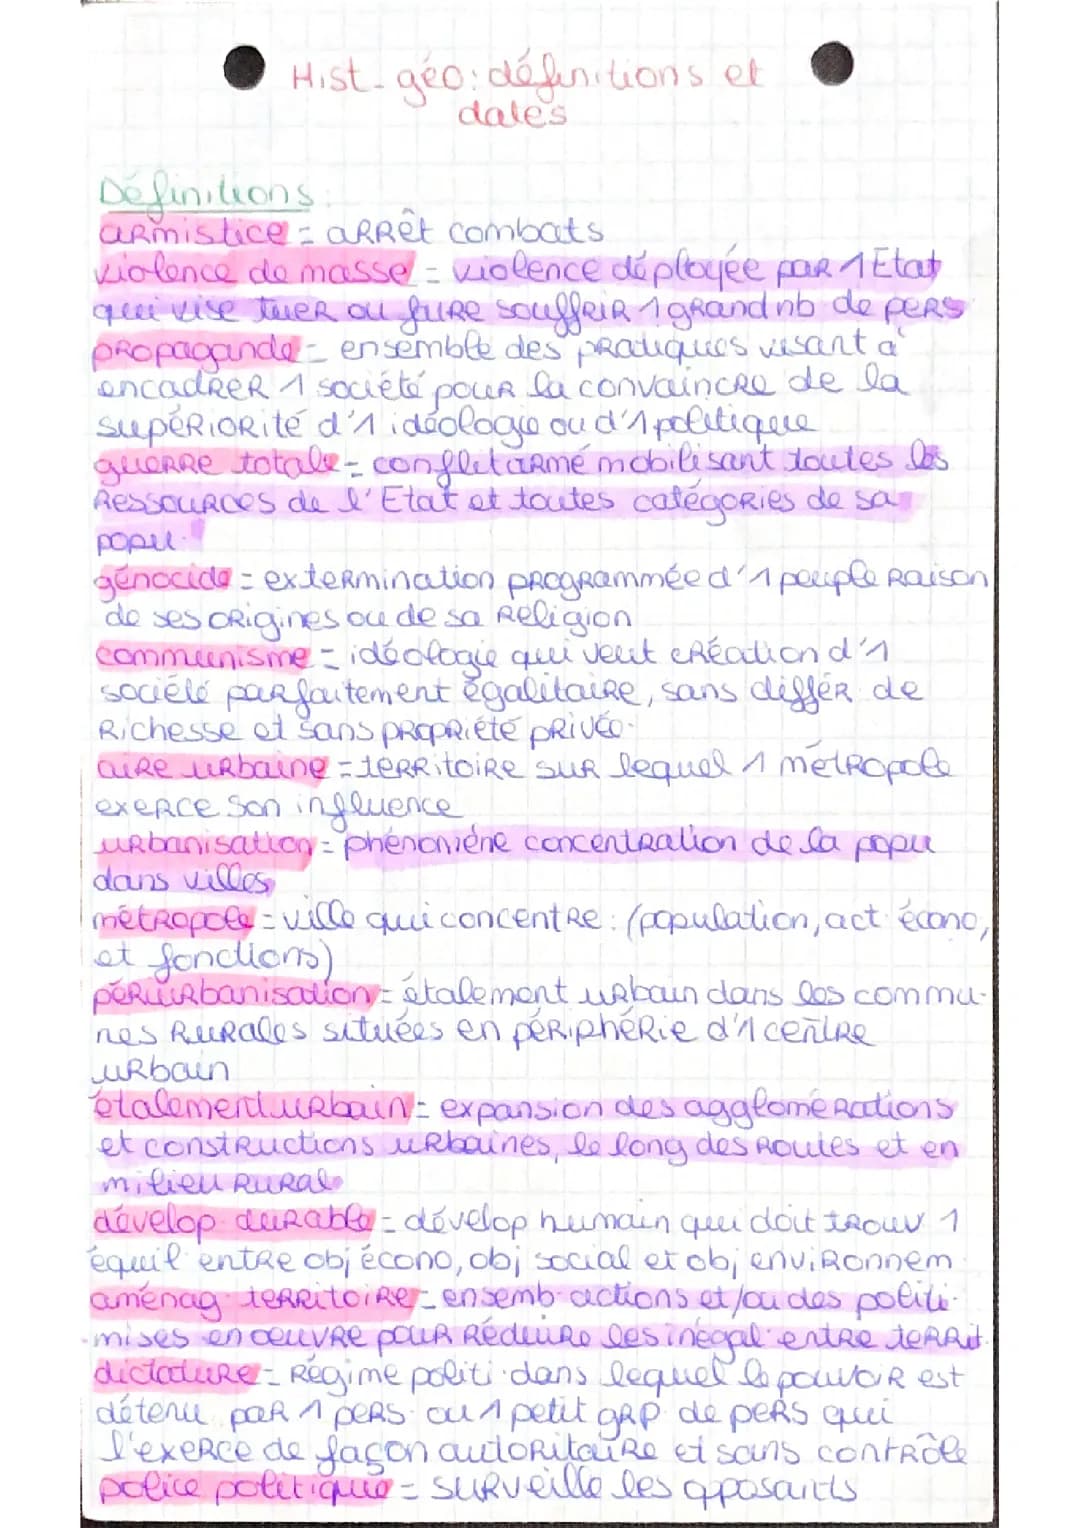 Hist-géo: définitions et
dates
Définitions:
armistice = arrêt combats
violence de masse = violence déployée par 1 Etat
qui vise tuer ou faire souffrir 1 grand nb de pers
propagande = ensemble des pratiques visant à
encadrer 1 société pour la convaincre de la
supériorité d'1 idéologie ou d'1 politique
guerre totale = conflit armé mobilisant toutes les
ressources de l'Etat et toutes catégories de sa
popu.
génocide = extermination programmée d'1 peuple raison
de ses origines ou de sa religion
communisme = idéologie qui veut création d'1
société parfaitement égalitaire, sans différ. de
richesse et sans propriété privée.
aire urbaine = territoire sur lequel 1 métropole
exerce son influence
urbanisation = phénomène concentration de la popu
dans villes
métropole = ville qui concentre : (population, act. écono,
et fonctions)
périurbanisation = étalement urbain dans les commu-
nes rurales situées en périphérie d'1 centre
urbain
étalement urbain = expansion des agglomérations
et constructions urbaines, le long des routes et en
milieu rural
dévelop. durable = dévelop humain qui doit trouv 1
équil. entre obj écono, obj social et obj environnem.
aménag. territoire = ensemb. actions et/ou des politi.
mises en oeuvre pour réduire les inégal. entre territ.
dictature = régime politi. dans lequel le pouvoir est
détenu par 1 pers. ou 1 petit grp. de pers qui
l'exerce de façon autoritaire et sans contrôle
police politique = surveille les opposants